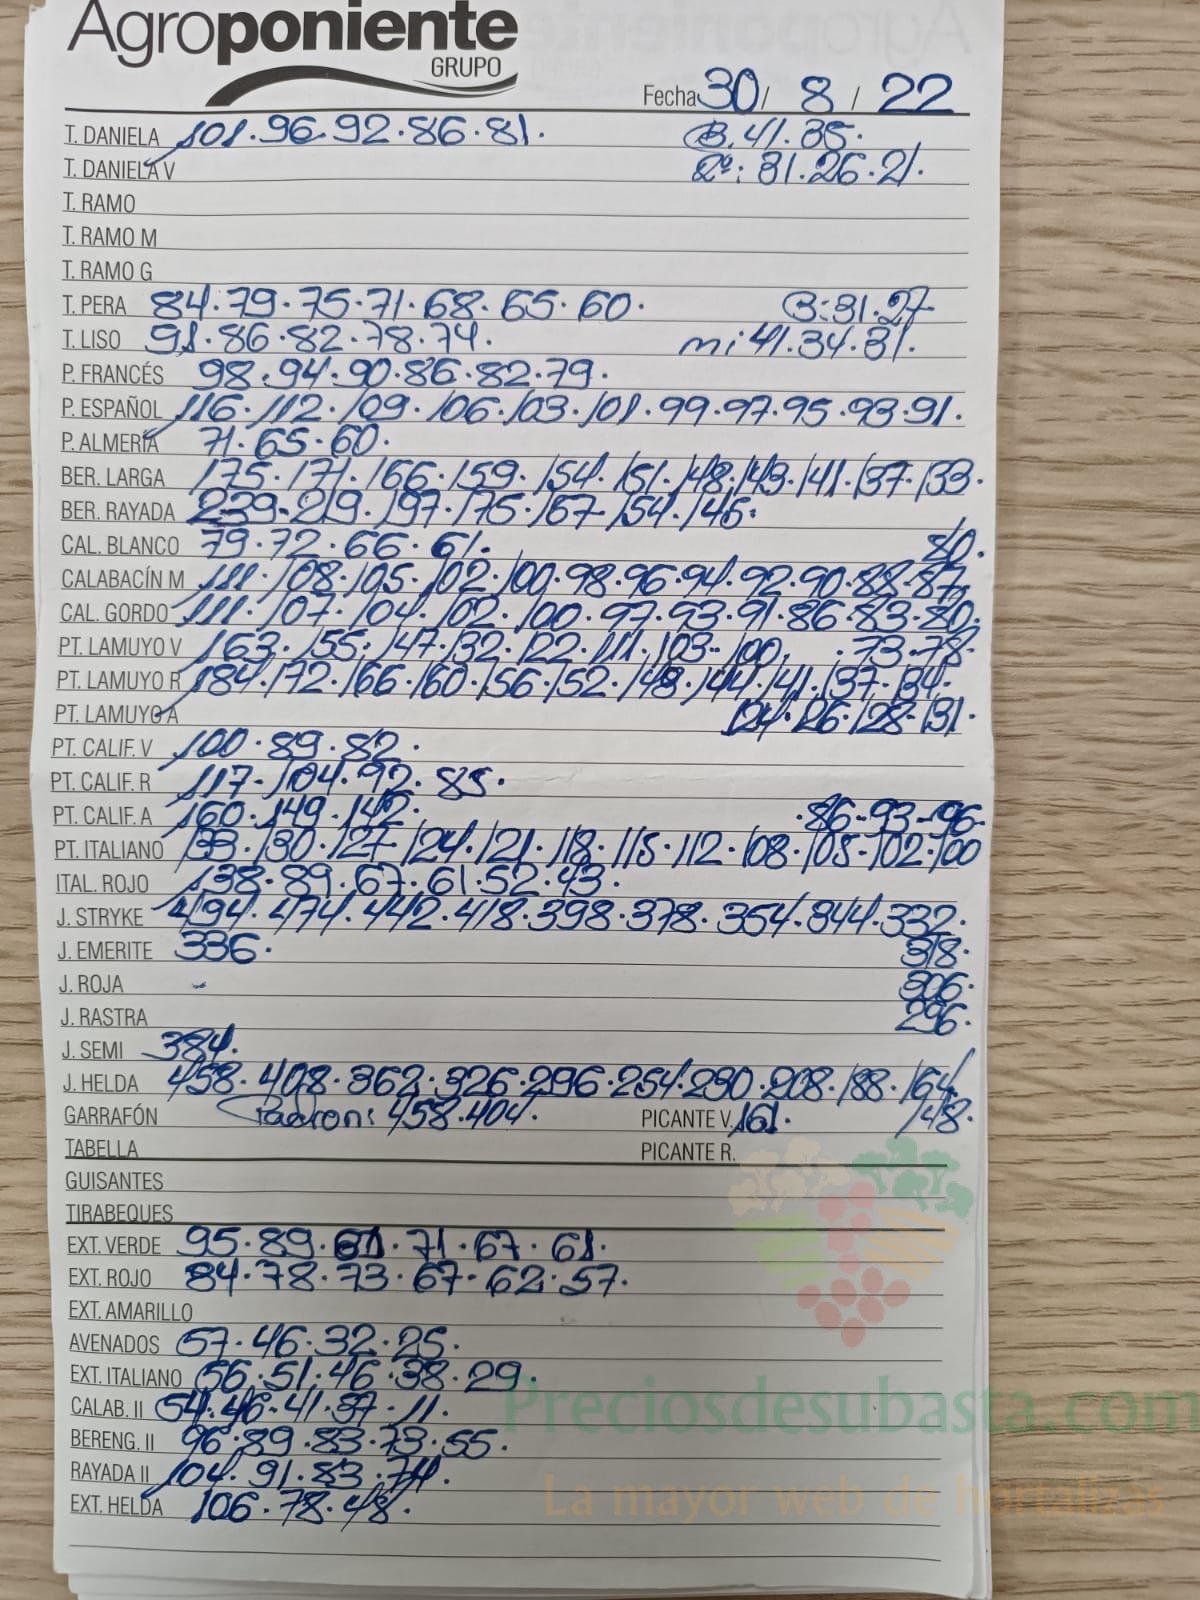 Agroponiente
GRUPO
Fecha 30/ 8 / 22
T. DANELA 101.96.92.86.81. B.41.35.
T. DANIELA V 2º: 31.26.21.
T. RAMO
T. RAMO M
T. RAMO G
T. PERA 84.79.75.71.68.65.60. B:31.27
T. LISO 91.86.82.78.74. m:41.34.31.
P. FRANCÉS 98.94.90.86.82.79.
P. ESPAÑOL 116.112.109.106.103.101.99.97.95.93.91.
P. ALMERÍA 71.65.60.
BER. LARGA 175.171.166.159.154.151.148.143.141.137.133.
BER. RAYADA 239-219.197.175.167-154.146.
CAL. BLANCO 79.72.66.61. 80.
CALABACÍN M 111.108.105.102.100.98.96.94.92.90.88-87.
CAL. GORDO 111.107.104.102.100.97.93.91.86.83.80.
PT. LAMUYO V 163.155.147.132.122.111.103-100. .73.78.
PT. LAMUYO R 184.172.166.160.156.152.148.144.141.137-134.
PT. LAMUYO A 124.126.128-131.
PT. CALIF. V 100.89.82.
PT. CALIF. R 117-104.92.85.
PT. CALIF. A 160.149.142. .86-93-96-
PT. ITALIANO 133.130.127-124.121.118.115.112.108.105-102-100
ITAL. ROJO 138-89.67.61.52.43.
J. STRYKE 494.474.442.418.398.378.354.344.332.
J. EMERITE 336. 318.
J. ROJA - 306.
J. RASTRA 296.
J. SEMI 384.
J. HELDA 458.408.362.326.296.254.230.208.188.164.
GARRAFÓN Padron: 458.404. PICANTE V. 161. 148.
TABELLA PICANTE R.
GUISANTES
TIRABEQUES
EXT. VERDE 95.89.81.71.67.61.
EXT. ROJO 84.78.73.67.62.57.
EXT. AMARILLO
AVENADOS 57.46.32.25.
EXT. ITALIANO 56.51.46.38.29.
CALAB. II 54.46.41.37.11.
BERENG. II 96.89.83.73.55.
RAYADA II 104.91.83.74.
EXT. HELDA 106.78.48.
Preciosdesubasta.com
La mayor web de hortalizas